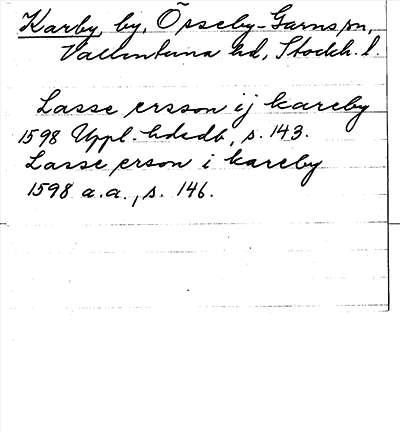 Karby, by, Össeby-Garns sn,
Vallentuna hd, Stockh. l.
Lasse ersson ij kareby
1598 Uppl. hdsdb, s. 143.
Lasse erson i kareby
1598 a.a., s. 146.